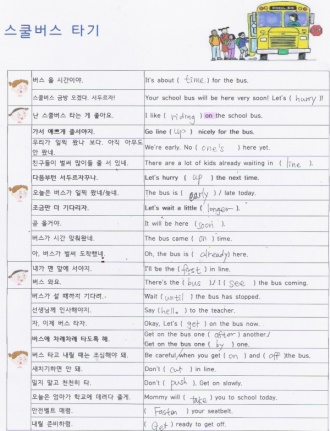 스쿨버스 타기
SCHOOL BUS
버스 올 시간이야. It's about ( time ) for the bus.
스쿨버스 금방 오겠다. 서두르자! Your school bus will be here very soon! Let's ( hurry )!
난 스쿨버스 타는 게 좋아요. I like ( riding ) on the school bus.
가서 예쁘게 줄서야지. Go line ( up ) nicely for the bus.
우리가 일찍 왔나 보다. 아직 아무도 안 왔네. We're early. No ( one's ) here yet.
친구들이 벌써 많이들 줄 서 있네. There are a lot of kids already waiting in ( line ).
다음부턴 서두르자꾸나. Let's hurry ( up ) the next time.
오늘은 버스가 일찍 왔네/늦네. The bus is ( early ) / late today.
조금만 더 기다리자. Let's wait a little ( longer ).
곧 올거야. It will be here ( soon ).
버스가 시간 맞춰왔네. The bus came ( on ) time.
아, 버스가 벌써 도착했네. Oh, the bus is ( already ) here.
내가 맨 앞에 서야지. I'll be the ( first ) in line.
버스 와요. There's the ( bus )/I ( see ) the bus coming.
버스가 설 때까지 기다려. Wait ( until ) the bus has stopped.
선생님께 인사해야지. Say ( hello ) to the teacher.
자, 이제 버스 타자. Okay, Let's ( get ) on the bus now.
버스에 차례차례 타도록 해. Get on the bus one ( after ) another./
Get on the bus one ( by ) one.
버스 타고 내릴 때는 조심해야 돼. Be careful when you get ( on ) and ( off ) the bus.
새치기하면 안 돼. Don't ( cut ) in line.
밀지 말고 천천히 타. Don't ( push ). Get on slowly.
오늘은 엄마가 학교에 데려다 줄게. Mommy will ( take ) you to school today.
안전벨트 매렴. ( Fasten ) your seatbelt.
내릴 준비하렴. ( Get ) ready to get off.